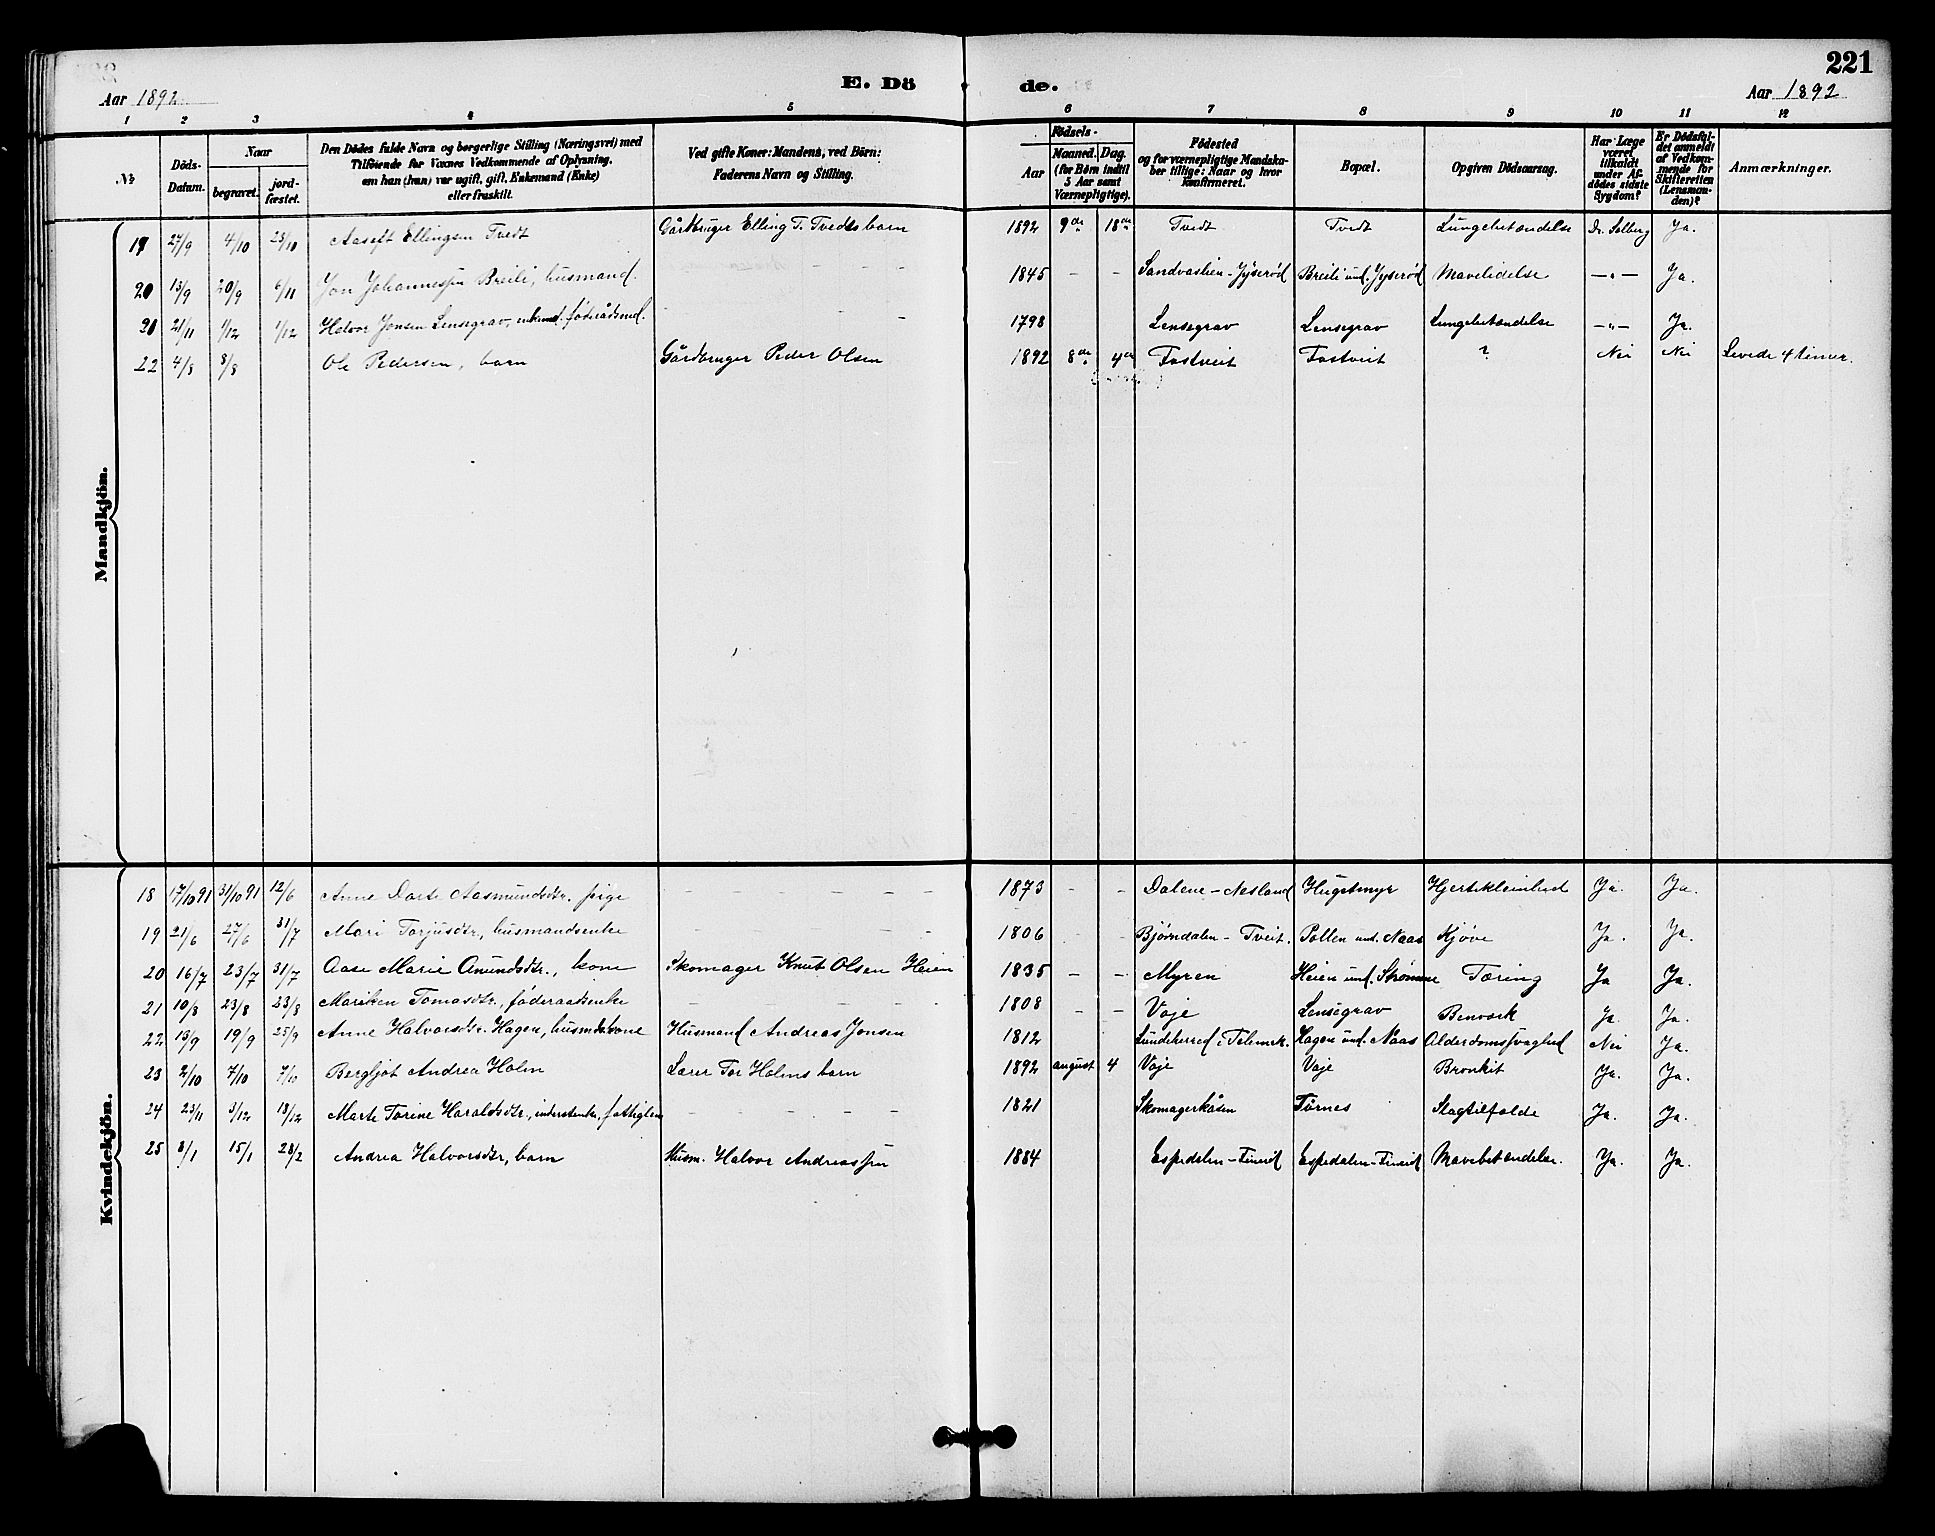 221
Aar 1892
E. Dö
de.
Aar 1892
1 2 3 4 5 6 7 8 9 10 11 12
№
Döds-Datum.
Naar
begravet.
jord-fæstet.
Den Dödes fulde Navn og borgerlige Stilling (Næringsvei) med
Tilföiende for Voxnes Vedkommende af Oplysning,
om han (hun) var ugift, gift, Enkemand (Enke)
eller fraskilt.
Ved gifte Koner: Mandens, ved Börn:
Faderens Navn og Stilling.
Födsels-
Aar
Maaned. Dag.
(for Börn indtil
5 Aar samt
Værnepligtige).
Födested
og for værnepligtige Mandska-
ber tillige: Naar og hvor
konfirmeret.
Bopæl.
Opgiven Dödsaarsag.
Har Læge
været
tilkaldt
under Af-
dödes sidste
Sygdom?
Er Dödsfal-
det anmeldt
af Vedkom-
mende for
Skifteretten
(Lensman-
den)?
Anmærkninger.
Mandkjön.
19 27/9 4/10 23/10 Aaseft Ellingsen Tvedt Gårdbruger Elling T. Tvedts barn 1892 9de 18de Tvedt Tvedt Lungebetændelse Dr. Solberg Ja.
20 13/9 20/9 6/11 Jon Johannessen Breili, husmand. - - - 1845 - - Sandvashien - Jyserød Breili und. Jyserød Mavelidelse -"- Ja.
21 21/11 1/12 1/12 Halvor Jensen Lensegrav, enkemd. føderådsmd. - - - 1798 Lensegrav Lensegrav Lungebetændelse -"- Ja.
22 4/8 8/8 Ole Pedersen, barn Gårdbruger Peder Olsen 1892 8de 4de Fostveit Fostveit ? Nei Nei Levede 4 timer.
Kvindekjön.
18 17/10 91 31/10 91 12/6 Anne Dorte Aasmundsdtr. pige - - - - - 1873 - - Dalene - Nesland Hugstmyr Hjerteklemhed Ja. Ja.
19 21/6 27/6 31/7 Mari Torjusdtr., husmandsenke - - - - - 1806 - - Bjørndalen - Tveit. Pollen und. Naas Kjøve Ja. Ja.
20 16/7 23/7 31/7 Aase Marie Anundsdtr., kone Skomager Knut Olsen Heien 1835 - - Myren Heien und. Strømme Tæring Ja Ja.
21 10/8 23/8 23/8 Mariken Tomasdtr., føderaadsenke - - - - - 1808 - - Voje Lensegrav Benværk Ja. Ja.
22 13/9 19/9 25/9 Anne Halvorsdtr. Hagen, husmdskone Husmand Andreas Jonsen 1812 Lundeherred i Telemrk. Hagen und. Naas Alderdomssvaghed Nei Ja.
23 2/10 7/10 7/10 Bergljot Andrea Holm Lærer Tor Holms barn 1892 august 4 Voje Voje Bronkit Ja. Ja.
24 23/11 3/12 18/12 Marte Torine Haraldsdtr., inderstenke, fattiglem - - - - - 1821 Skomagerkåsen Tørnes Slagtilfælde Ja. Ja.
25 8/1 15/1 28/2 Andrea Halvorsdtr, barn Husm. Halvor Andreassen 1884 Espedalen - Fineid Espedalen - Fineid Mavebetændelse. Ja. Ja.